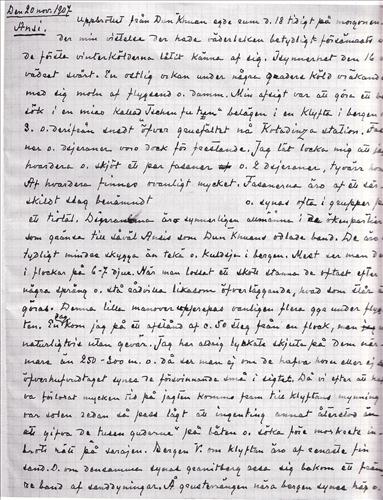 Den 20 nov. 1907
Ansi.
Uppbrottet från Dun Khuan egde rum d. 18 tidigt på morgonen
der min vistelse der hade väderleken betydligt försämrats o
de första vinterköldarna låtit känna af sig. Isynnerhet den 16
vädset svårt. En ostlig orkan under några graders köld
med sig moln af flygsand o. damm. Min afsigt var att göra ett be
sök i en miao kallad belägen i en klyfta i bergen
S. o. derifrån snedt öfver till station.
ner o. djeraner voro dock för frestande. Jag lät locka mig att på
hvardera o. skjöt ett par fasaner o. 2 djeraner, tyvärr
Af hvardera finnes ovanligt mycket. Fasanerna äro af en sär
skild slag benämndt o. synas ofta i grupper på
ett tiotal. Djeranerna äro synnerligen allmänna i de ökenpartier
som gränsa till såväl Ansis som Dun Khuans odlade land. De äro
tydligt mindre skygga än teke o. kuldja i bergen. Mest ser man dem
i flockar på 6-7 djur. När man lossat ett skott stanna de oftast efter
några språng o. stå rådvilla liksom öfverläggande, hvad som
göras. Denna lilla manöver upprepas vanligen flera ggr under flyk
ten. En dag kom jag på ett afstånd af c. 50 steg från en flock, men
naturligtvis utan gevär. Jag har aldrig lyckats skjuta på dem när
mare än 250-300 m. o. då ser man ej om de hafva horn eller ej o.
öfverhufvudtaget synas de försvinnande små i sigtet. Då vi efter att ha
va förlorat mycken tid på jagten kommo fram till klyftans mynning
var solen redan så pass lågt att ingenting annat återstod än
att gifva de tusen gudarne på båten o. söka före mörkrets in
brott nå fram på sarajen. Bergen V. om klyftan äro af senaste
sand. O. om densamma synas granitberg resa sig bakom ett främ
re band af sanddyningar. Å gustsvängen nära bergen synas